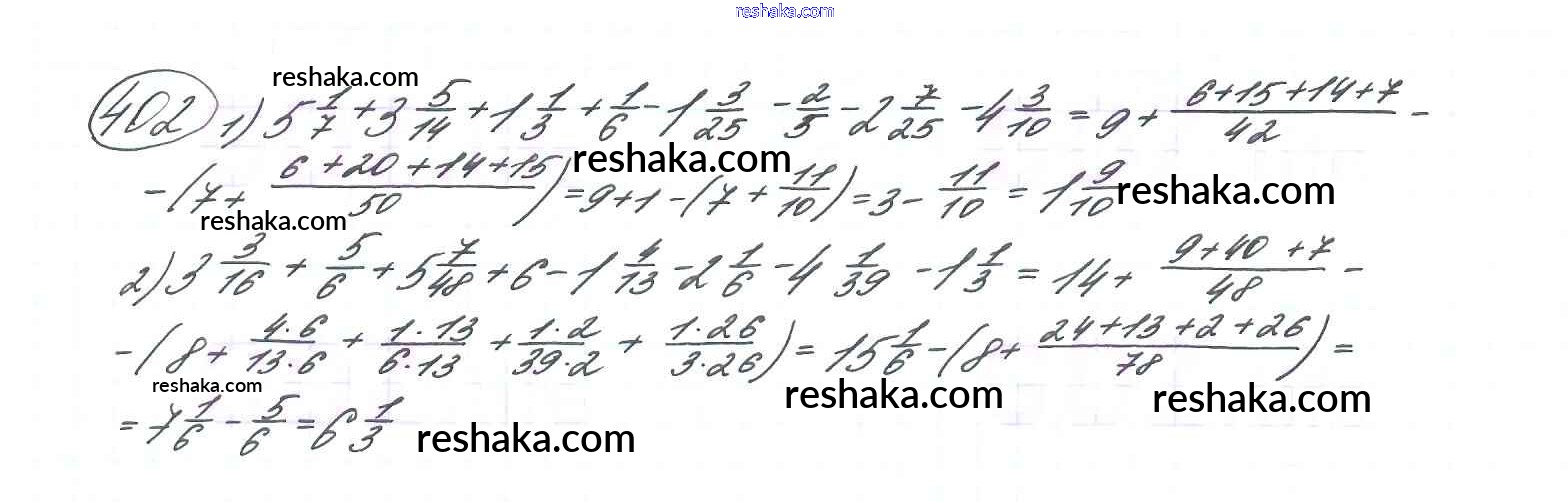 reshaka.com
reshaka.com
402 1) 5 1/7 + 3 5/14 + 1 1/3 + 1/6 - 1 3/25 - 2/5 - 2 7/25 - 4 3/10 = 9 + (6+15+14+7)/42 -
- (7 + (6+20+14+15)/50) = 9+1-(7+11/10) = 3 - 11/10 = 1 9/10
reshaka.com
reshaka.com
reshaka.com
2) 3 3/16 + 5/6 + 5 7/48 + 6 - 1 4/13 - 2 1/6 - 4 1/39 - 1 1/3 = 14 + (9+40+7)/48 -
- (8 + (4·6)/(13·6) + (1·13)/(6·13) + (1·2)/(39·2) + (1·26)/(3·26)) = 15 1/6 - (8 + (24+13+2+26)/78) =
reshaka.com
reshaka.com
reshaka.com
= 7 1/6 - 5/6 = 6 1/3
reshaka.com